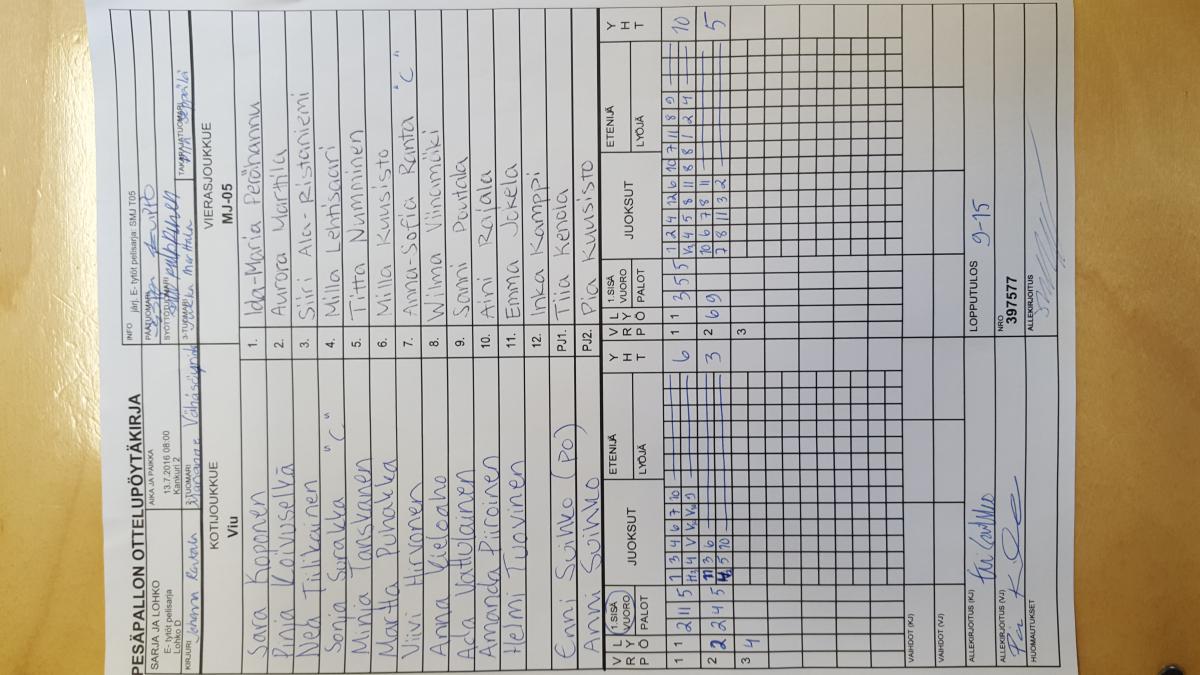 PESÄPALLON OTTELUPÖYTÄKIRJA
SARJA JA LOHKO
E- tytöt pelisarja
Lohko D
AIKA JA PAIKKA
13.7.2016 08:00
Kankuri 2
INFO järj. E- tytöt pelisarja: SMJ T05
PÄÄTUOMARI
SYÖTTÖTUOMARI
KIRJURI Johanna
2-TUOMARI Marianne
3-TUOMARI Jukka Marttala
TAKARAJATUOMARI
KOTIJOUKKUE
Viu
VIERASJOUKKUE
MJ-05
Sara Koponen 1. Ida-Maria Perähannu
Pinja Koivuselkä 2. Aurora Marttila
Nea Tiilikainen 3. Siiri Ala-Ristaniemi
Sonja Surakka "C" 4. Milla Lehtisaari
Minja Tanskanen 5. Titta Numminen
Martta Puhakka 6. Milla Kuusisto
Viivi Hirvonen 7. Anna-Sofia Ranta "C"
Anna Kieloaho 8. Wilma Viinamäki
Ada Vattulainen 9. Sanni Poutala
Amanda Piiroinen 10. Aini Rajala
Helmi Tuovinen 11. Emma Jokela
12. Inka Kamppi
Enni Suihko (PO) PJ1. Tiia Kenola
Anni Suihko PJ2. Pia Kuusisto
V R P L Y Ö 1.SISÄ VUORO PALOT JUOKSUT ETENIJÄ LYÖJÄ Y H T V R P L Y Ö 1.SISÄ VUORO PALOT JUOKSUT ETENIJÄ LYÖJÄ Y H T
1 1 2 11 5 1 3 4 6 7 10 6 1 1 3 5 5 1 2 4 12 6 10 7 11 8 9 10
4 5 8 11 8 8 1 2 4
2 2 2 4 5 11 3 6 3 2 6 9 10 6 7 8 11 5
5 10 7 8 11 3 2
3 4 3
VAIHDOT (KJ)
VAIHDOT (VJ)
ALLEKIRJOITUS (KJ)
LOPPUTULOS 9-15
ALLEKIRJOITUS (VJ)
NRO
397577
HUOMAUTUKSET
ALLEKIRJOITUS